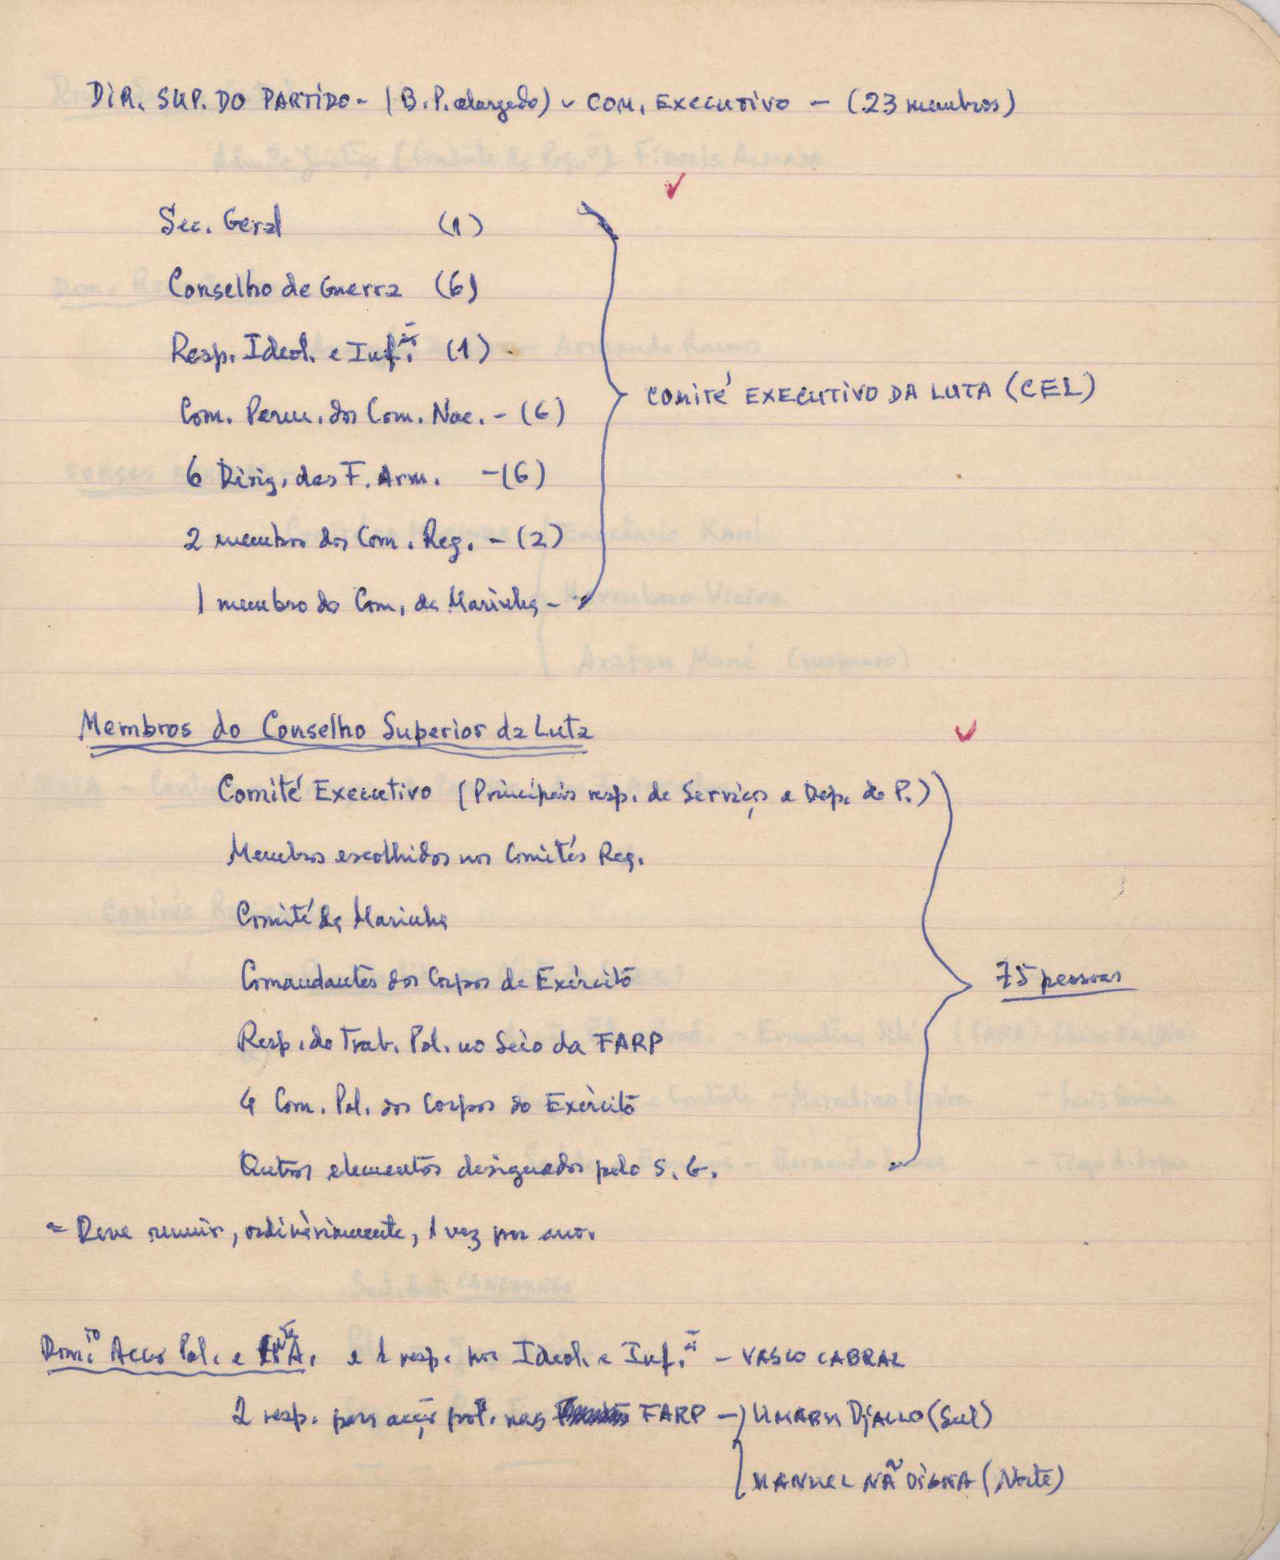 DIR. SUP. DO PARTIDO - (B. P. alargado) - COM. EXECUTIVO - (23 membros)
Sec. Geral (1)
Conselho de Guerra (6)
Resp. Ideol. e Inf. (1)
Com. Perm. dos Com. Nac. - (6)
6 Dirig. das F. Arm. - (6)
2 membros dos Com. Reg. - (2)
1 membro do Com. da Marinha -
COMITÉ EXECUTIVO DA LUTA (CEL)
Membros do Conselho Superior da Luta
Comité Executivo (Principais resp. de Serviços e Dep. do P.)
Membros escolhidos nos Comités Reg.
Comité da Marinha
Comandantes dos Corpos de Exército
75 pessoas
Resp. do Trab. Pol. no Seio da FARP
4 Com. Pol. dos Corpos do Exército
Outros elementos designados pelo S. G.
= Deve reunir, ordinàriamente, 1 vez por ano.
Pol. e 1 resp. por Ideol. e Inf. - VASCO CABRAL
2 resp. para acção pol. nas FARP - UMARU DJALLO (Sul)
MANUEL NÃ DIGNA (Norte)